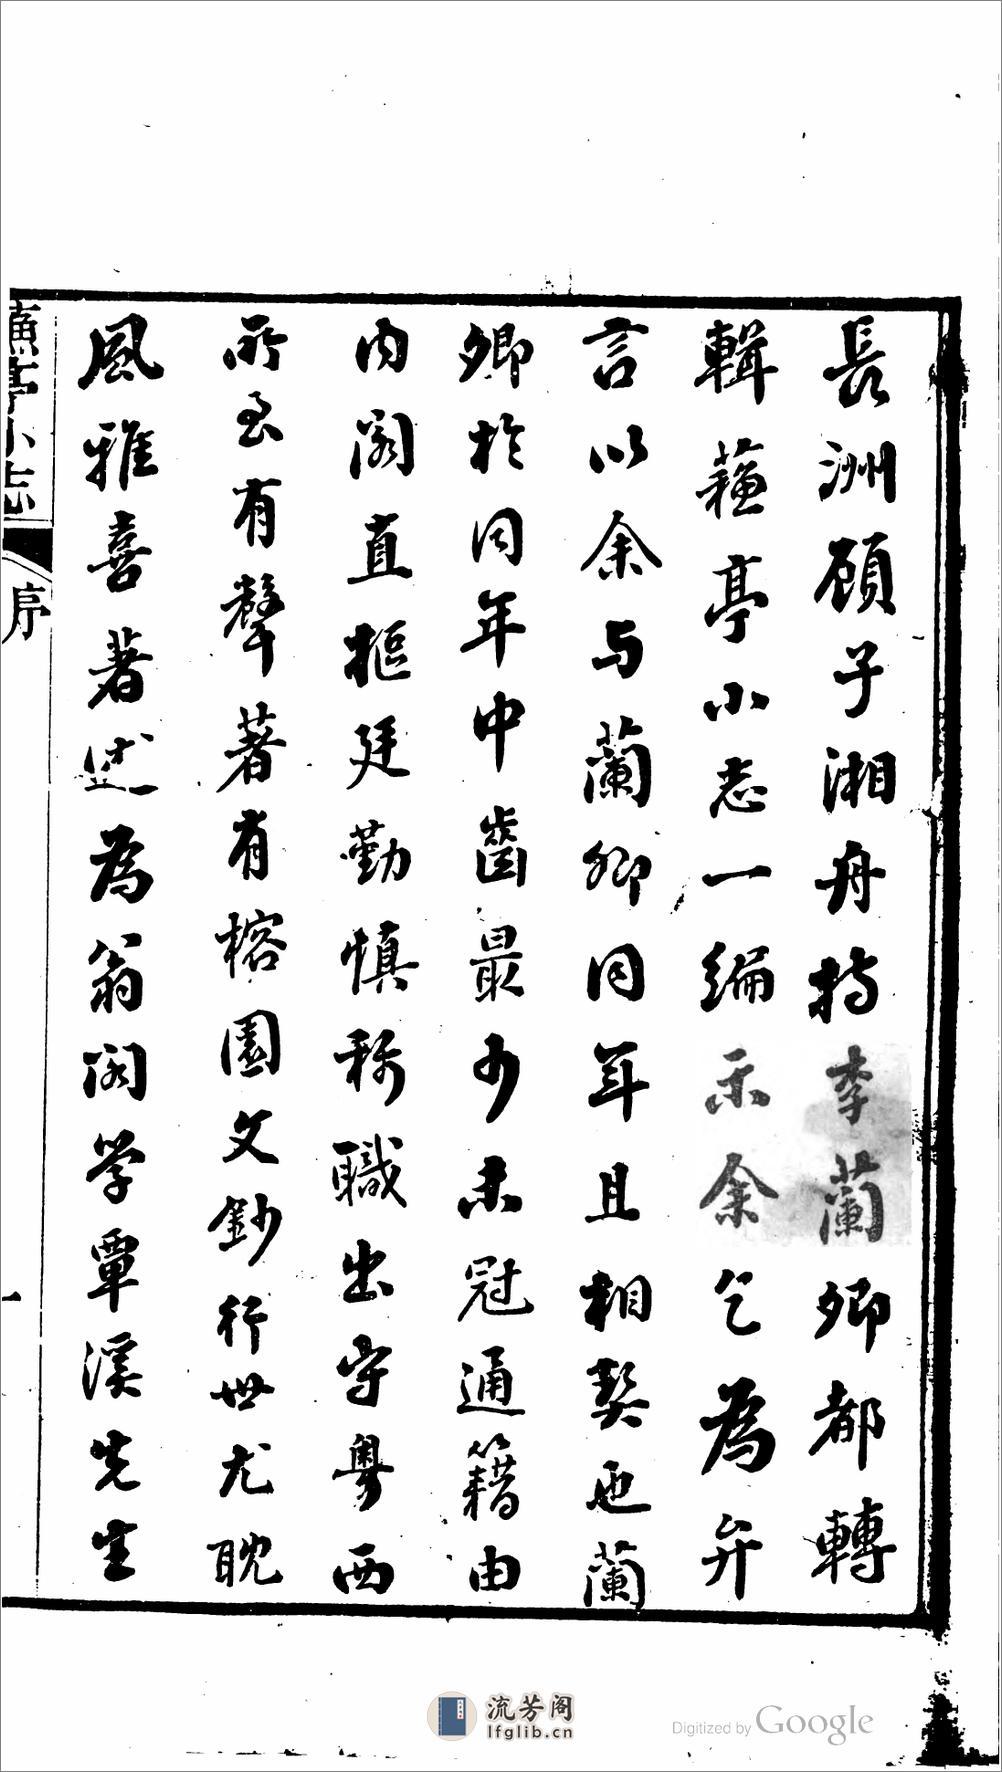 長洲顧子湘舟持李蘭卿都轉
輯蘓亭小志一編示余乞為弁
言以余与蘭卿同年且相契也蘭
卿於同年中齒最少未冠通籍由
内閣直樞廷勤慎称職出守粵西
所至有聲著有榕園文鈔行世尤耽
風雅喜著述為翁閣学覃溪先生
蘓亭小志
序
一
流芳阁
lfglib.cn
Digitized by Google